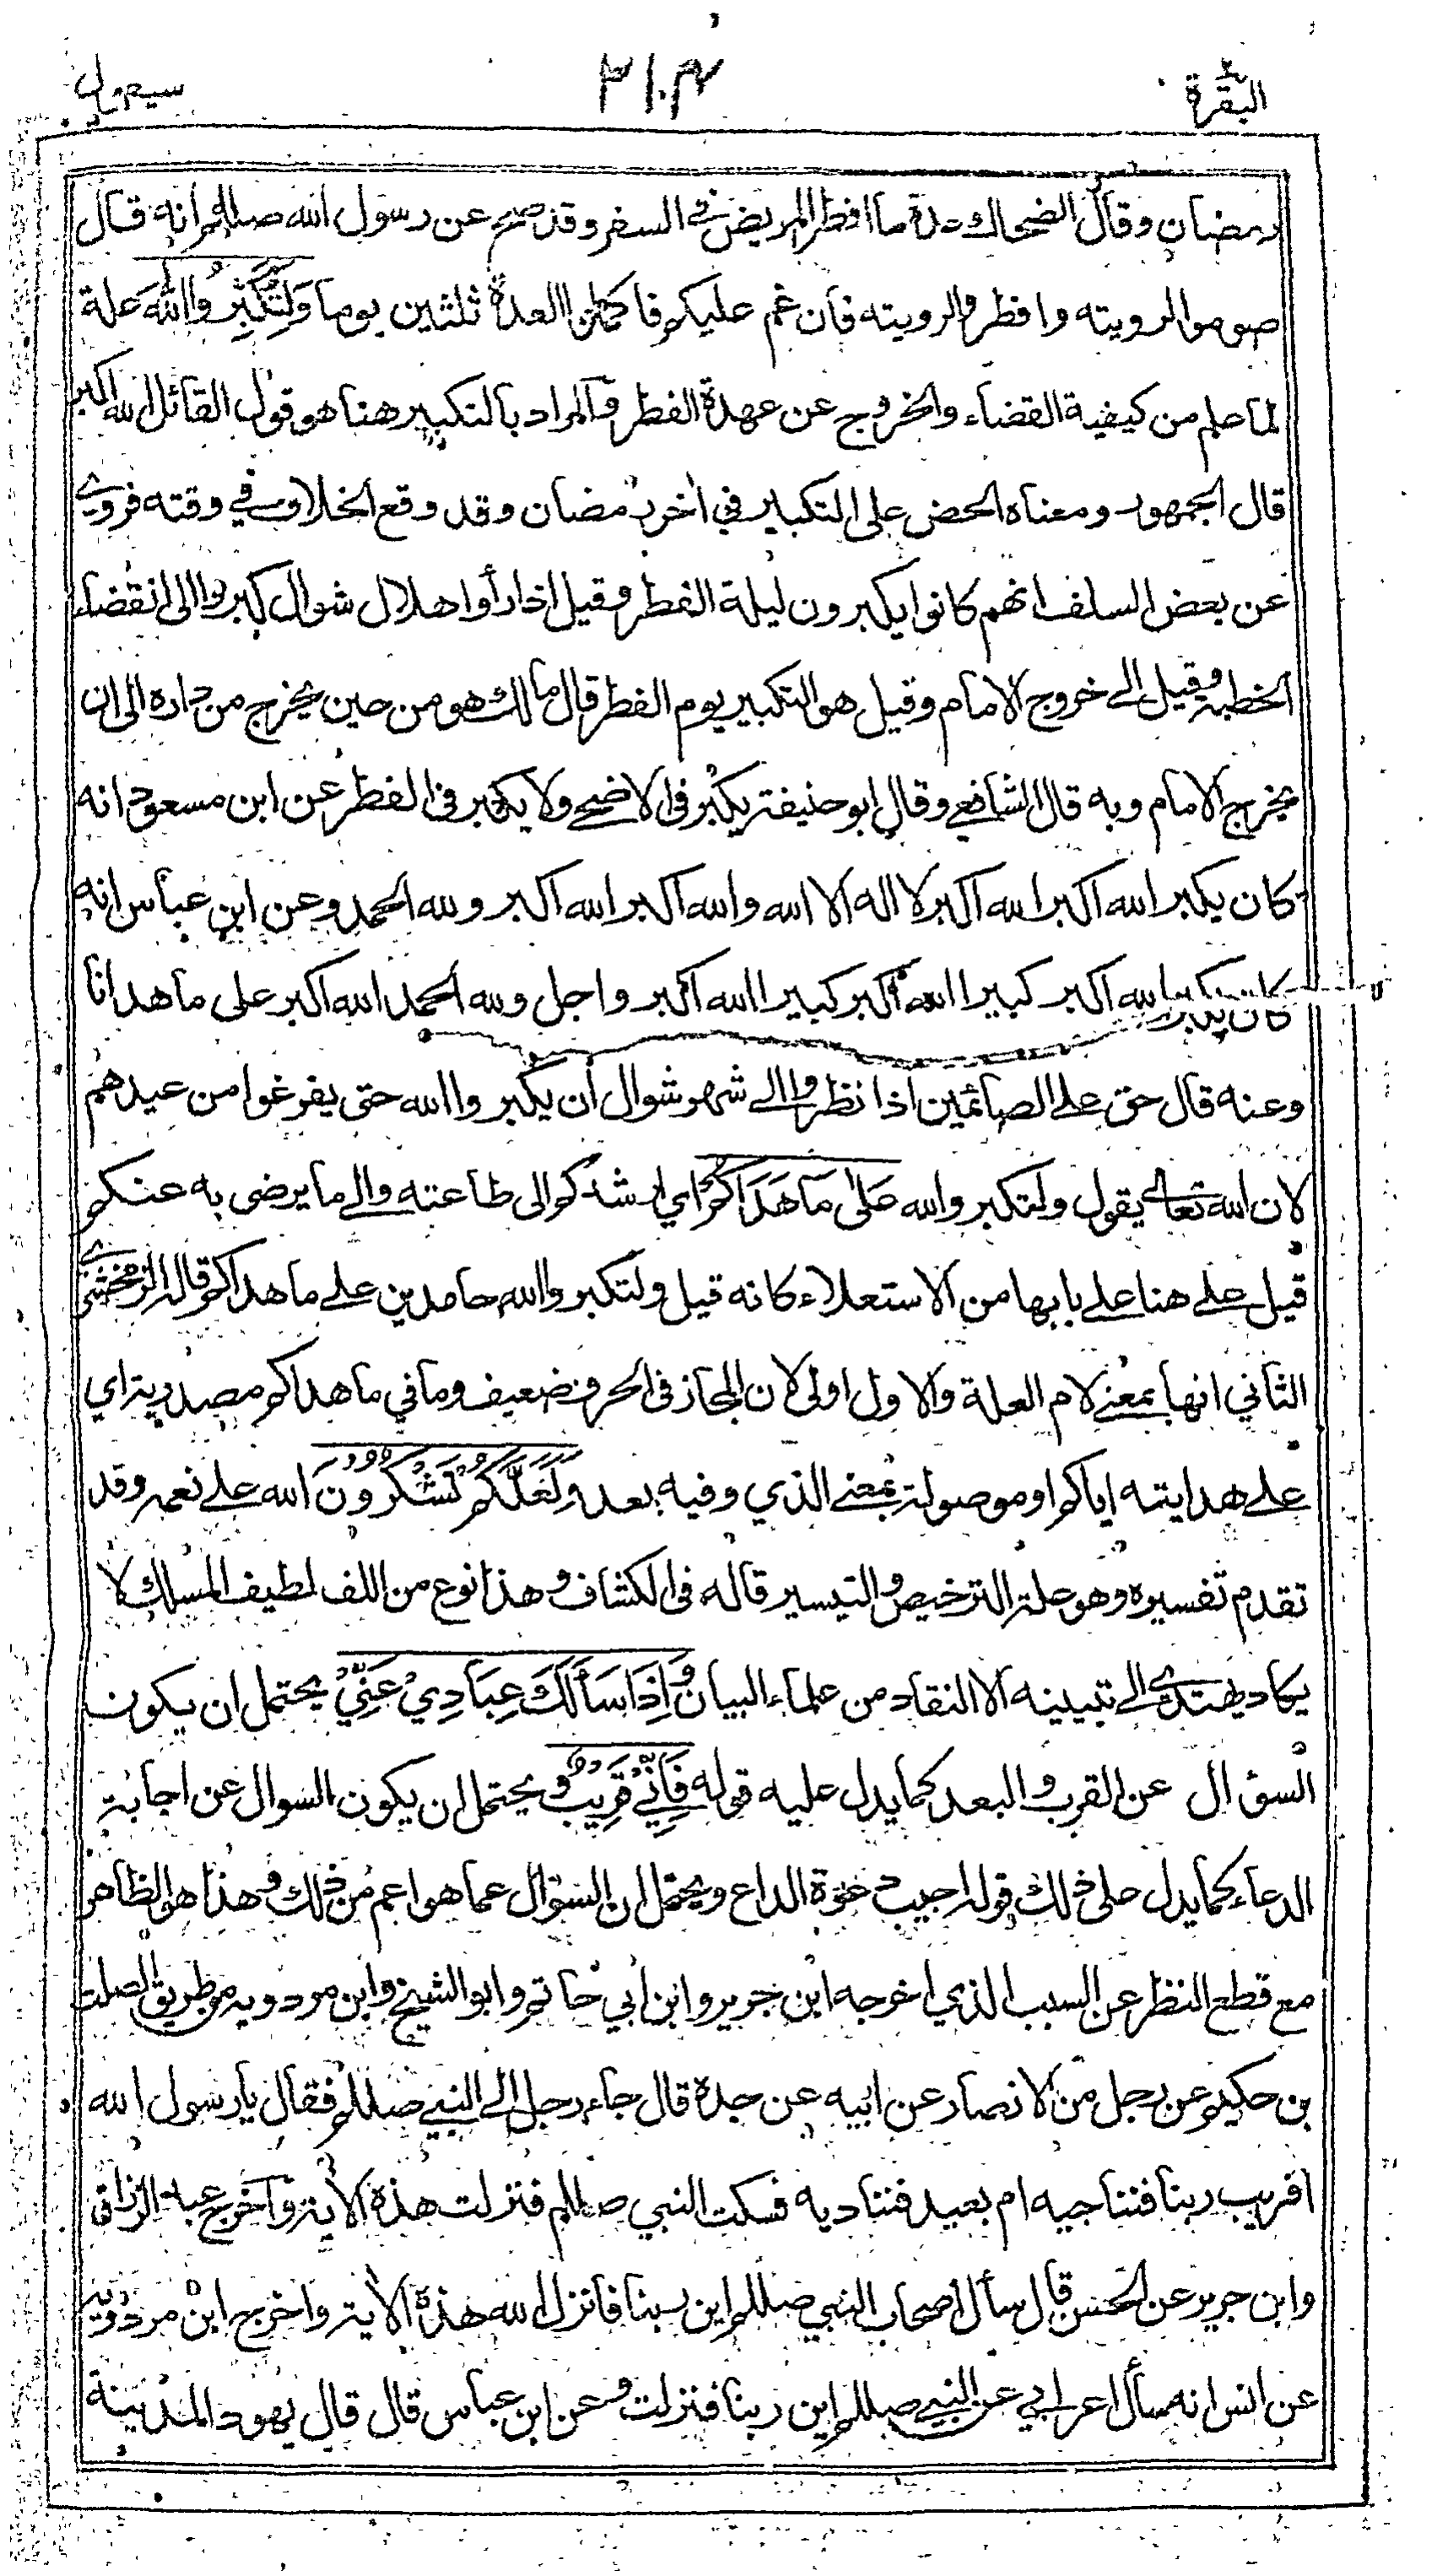 البقرة ٢١٠٣ سيقول
رمضان وقال الضحاك عدة ما افطر المريض في السفر وقد صح عن رسول الله صللم انه قال
صوموا لرويته وافطروا لرويته فان غم عليكم فاكملوا العدة ثلثين يوما وَلِتُكَبِّرُوا اللهَ علة
لما علم من كيفية القضاء والخروج عن عهدة الفطر والمراد بالتكبير هنا هو قول القائل الله اكبر
قال الجمهور ومعناه الحض على التكبير في اخر رمضان وقد وقع الخلاف في وقته فروي
عن بعض السلف انهم كانوا يكبرون ليلة الفطر وقيل اذا رأوا هلال شوال كبروا الى انقضاء
الخطبة وقيل الى خروج الامام وقيل هو التكبير يوم الفطر قال مالك هو من حين يخرج من داره الى ان
يخرج الامام وبه قال الشافعي وقال ابو حنيفة يكبر فى الاضحى ولا يكبر فى الفطر عن ابن مسعود انه
كان يكبر الله اكبر الله اكبر لا اله الا الله والله اكبر الله اكبر ولله الحمد وعن ابن عباس انه
كان يكبر الله اكبر كبيرا الله اكبر كبيرا الله اكبر واجل ولله الحمد الله اكبر على ما هدانا
وعنه قال حق على الصائمين اذا نظروا الى شهر شوال ان يكبروا الله حتى يفرغوا من عيدهم
لان الله تعالى يقول ولتكبروا الله عَلىٰ مَا هَدَاكُمْ اي ارشدكم الى طاعته والى ما يرضى به عنكم
قيل على هنا على بابها من الاستعلاء كانه قيل ولتكبروا الله حامدين على ما هداكم قاله الزمخشري
الثاني انها بمعنى لام العلة والاول اولى لان المجاز فى الحرف ضعيف وما في ما هداكم مصدرية اي
على هدايته اياكم او موصولة بمعنى الذي وفيه بعد وَلَعَلَّكُمْ تَشْكُرُونَ الله على نعمه وقد
تقدم تفسيره وهو علة الترخيص والتيسير قاله فى الكشاف وهذا نوع من اللف لطيف المسلك لا
يكاد يهتدى الى تبيينه الا النقاد من علماء البيان وَاِذَا سَأَلَكَ عِبَادِيْ عَنِّيْ يحتمل ان يكون
السؤال عن القرب والبعد كما يدل عليه قوله فَاِنِّيْ قَرِيْبٌ ويحتمل ان يكون السوال عن اجابة
الدعاء كما يدل على ذلك قوله اجيب دعوة الداع ويحتمل ان السؤال عما هو اعم من ذلك وهذا هو الظاهر
مع قطع النظر عن السبب الذي اخرجه ابن جرير وابن ابي حاتم وابو الشيخ وابن مردويه من طريق الصلت
بن حكيم عن رجل من الانصار عن ابيه عن جده قال جاء رجل الى النبي صللم فقال يا رسول الله
اقريب ربنا فنناجيه ام بعيد فنناديه فسكت النبي صللم فنزلت هذه الاية واخرج عبد الرزاق
وابن جرير عن الحسن قال سأل اصحاب النبي صللم اين ربنا فانزل الله هذه الاية واخرج ابن مردويه
عن انس انه سأل اعرابي عن النبي صللم اين ربنا فنزلت وعن ابن عباس قال قال يهود المدينة